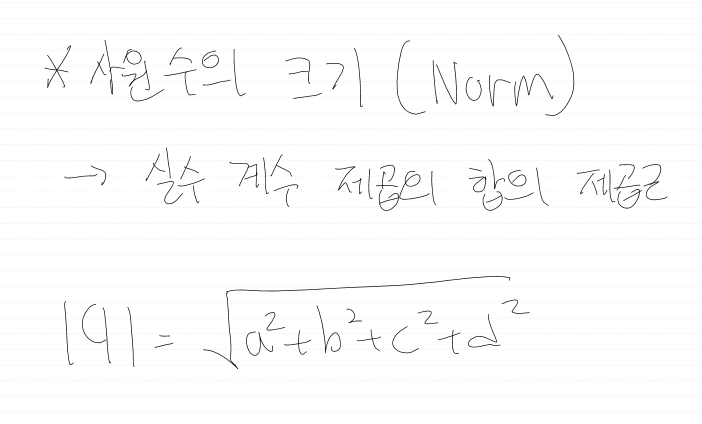 * 사원수의 크기 (Norm)
→ 실수 계수 제곱의 합의 제곱근
|q| = √a²+b²+c²+d²